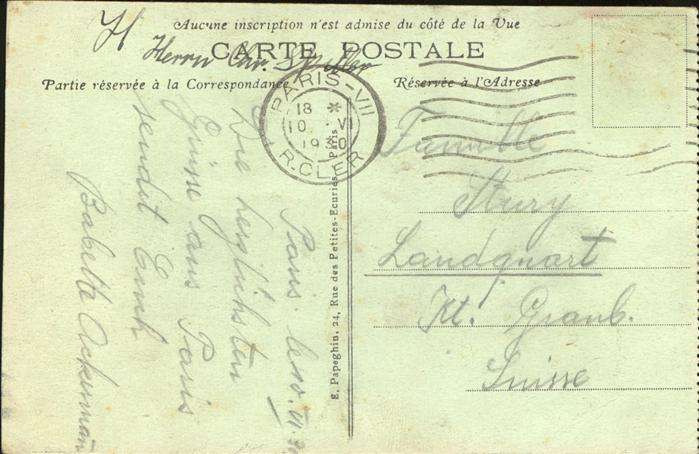 Aucune inscription n'est admise du côté de la Vue
H
Herrn
CARTE POSTALE
Partie réservée à la Correspondance
Réservée à l'Adresse
PARIS-VII
18 *
10 VI
1930
R. CLER
Paris. le 10. VI. 30
Die herzlichsten
Grüsse aus Paris
sendet Euch
Babette Ackermann
E. Papeghin, 24, Rue des Petites-Ecuries, Paris
Familie
Landquart
Kt. Graub.
Suisse